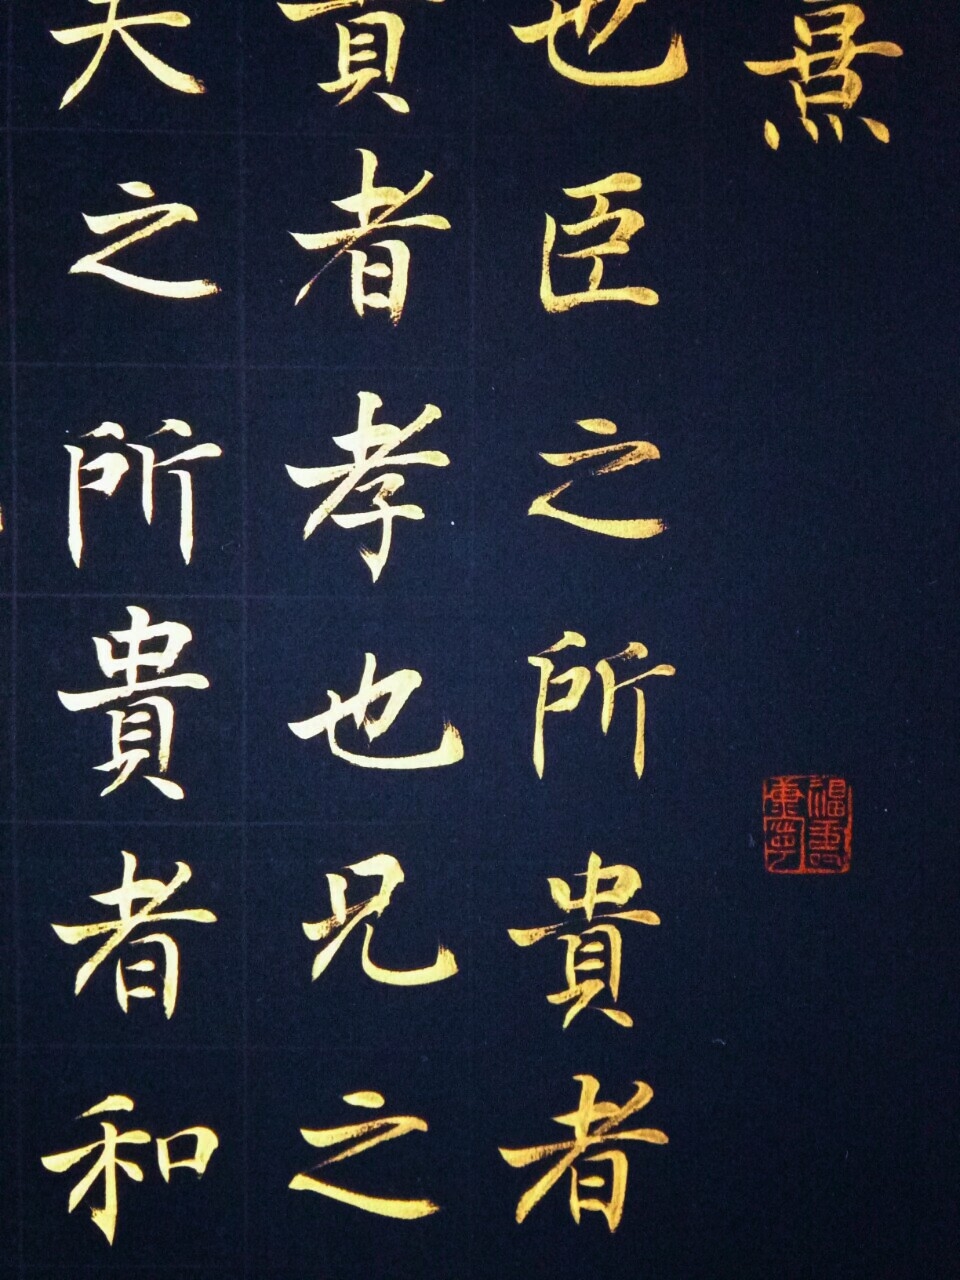 熹
也臣之所貴者
貴者孝也兄之
夫之所貴者和
福壽康寧